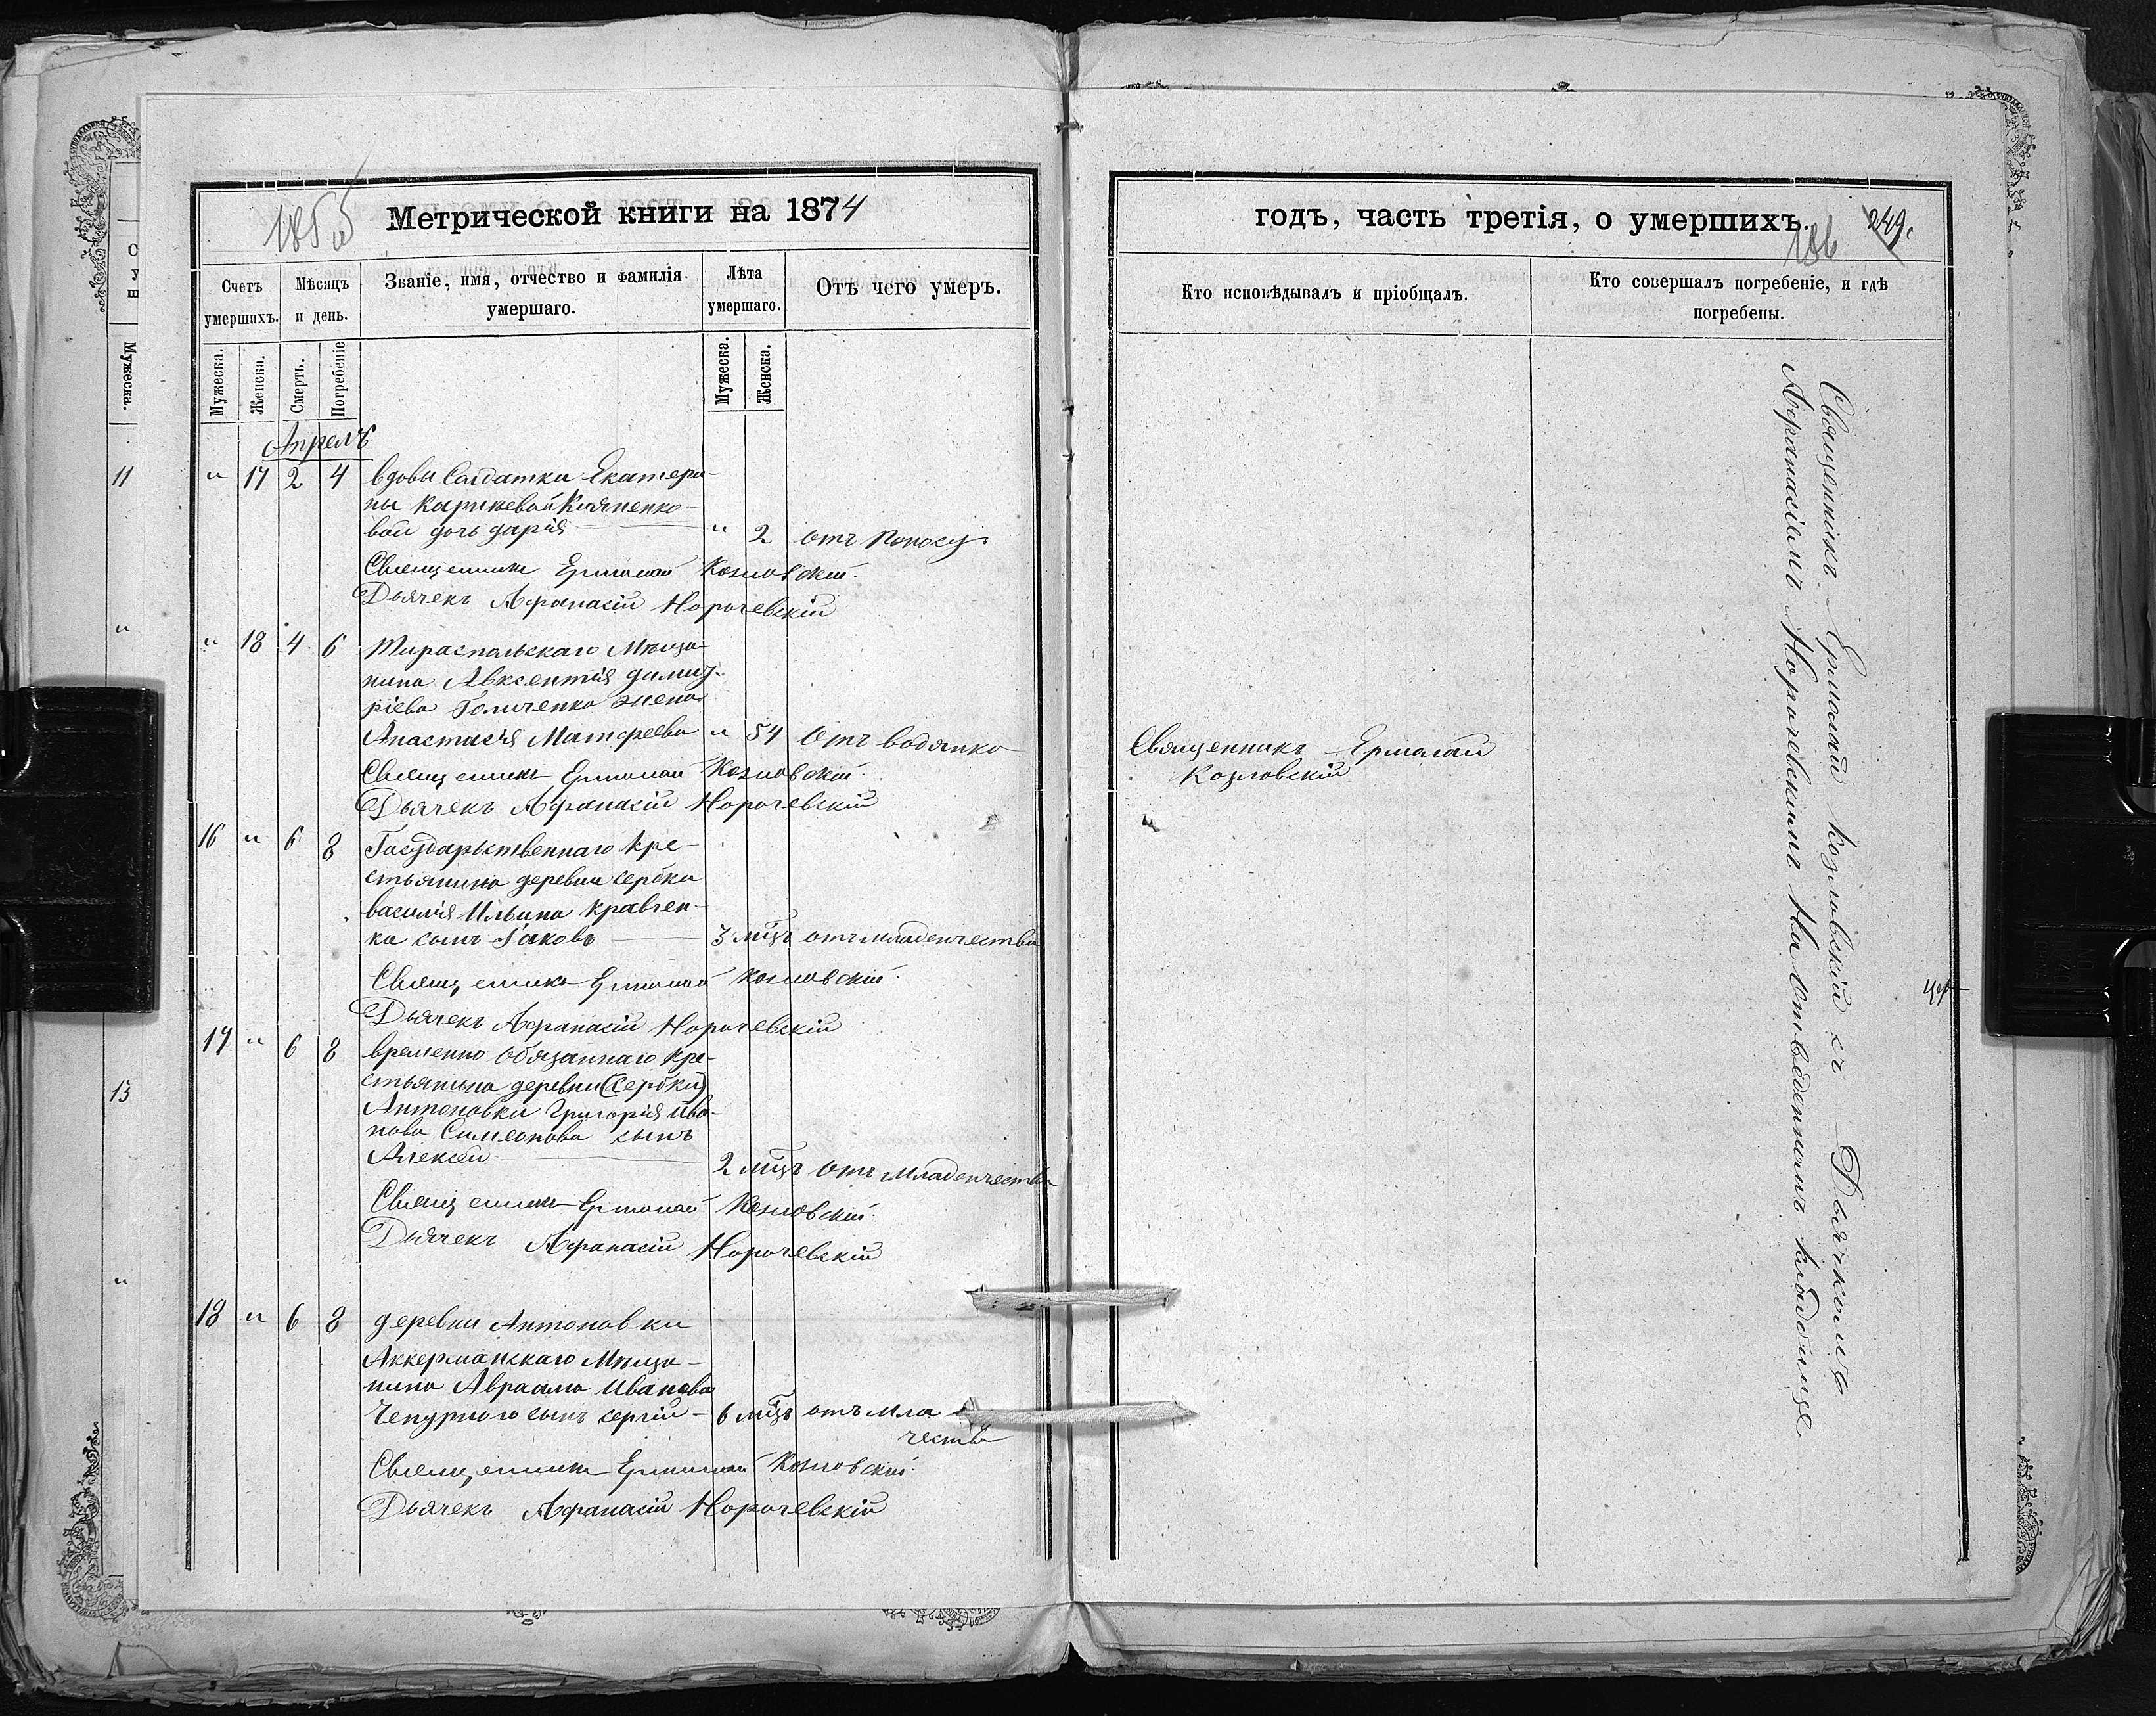 Метрической книги на 1874
Счетъ умершихъ.
Мѣсяцъ и день.
Званіе, имя, отчество и фамилія умершаго.
Лѣта умершаго.
Отъ чего умеръ.
Мужеска.
Женска.
Смерть.
Погребеніе
Мужеска.
Женска.
Апрель
" 17 2 4 вдовы Солдатки Екатери-
ны
вой дочь дарія — " 2 отъ Поносу.
Священникъ Ермолай Козловскій.
Дьячекъ Афанасій Норочевскій
" 18 4 6 Тираспольскаго Мѣща-
нина Авксентія димит-
ріева Голиченко жена
Анастасія Матфеева " 54 отъ водянки
Священникъ Ермолай Козловскій.
Дьячекъ Афанасій Норочевскій
16 " 6 8 Государьственнаго кре-
стьянина деревни сербки
василія Ильина кравчен-
ка сынъ Іаковъ — 3 мѣцъ отъ младенчества
Священникъ Ермолай Козловскій.
Дьячекъ Афанасій Норочевскій
17 " 6 8 временно обязаннаго кре-
стьянина деревни (Сербки)
Антоновки Григорія Ива-
нова Симеонова сынъ
Алексей — 2 мѣцъ отъ младенчества
Священникъ Ермолай Козловскій.
Дьячекъ Афанасій Норочевскій
18 " 6 8 деревни Антоновки
Аккерманскаго Мѣща-
нина Авраама Иванова
Чепурного сынъ сергій — 6 мѣцъ отъ мла
чества
Священникъ Ермолай Козловскій.
Дьячекъ Афанасій Норочевскій
годъ, часть третія, о умершихъ.
186
249.
Кто исповѣдывалъ и пріобщалъ.
Кто совершалъ погребеніе, и гдѣ погребены.
Священникъ Ермолай
Козловскій
Священникъ Ермолай Козловскій съ Дьячкомъ
Афанасіемъ Норочевскимъ На отведенномъ кладбище
С
Мужеска.
11
"
13
"